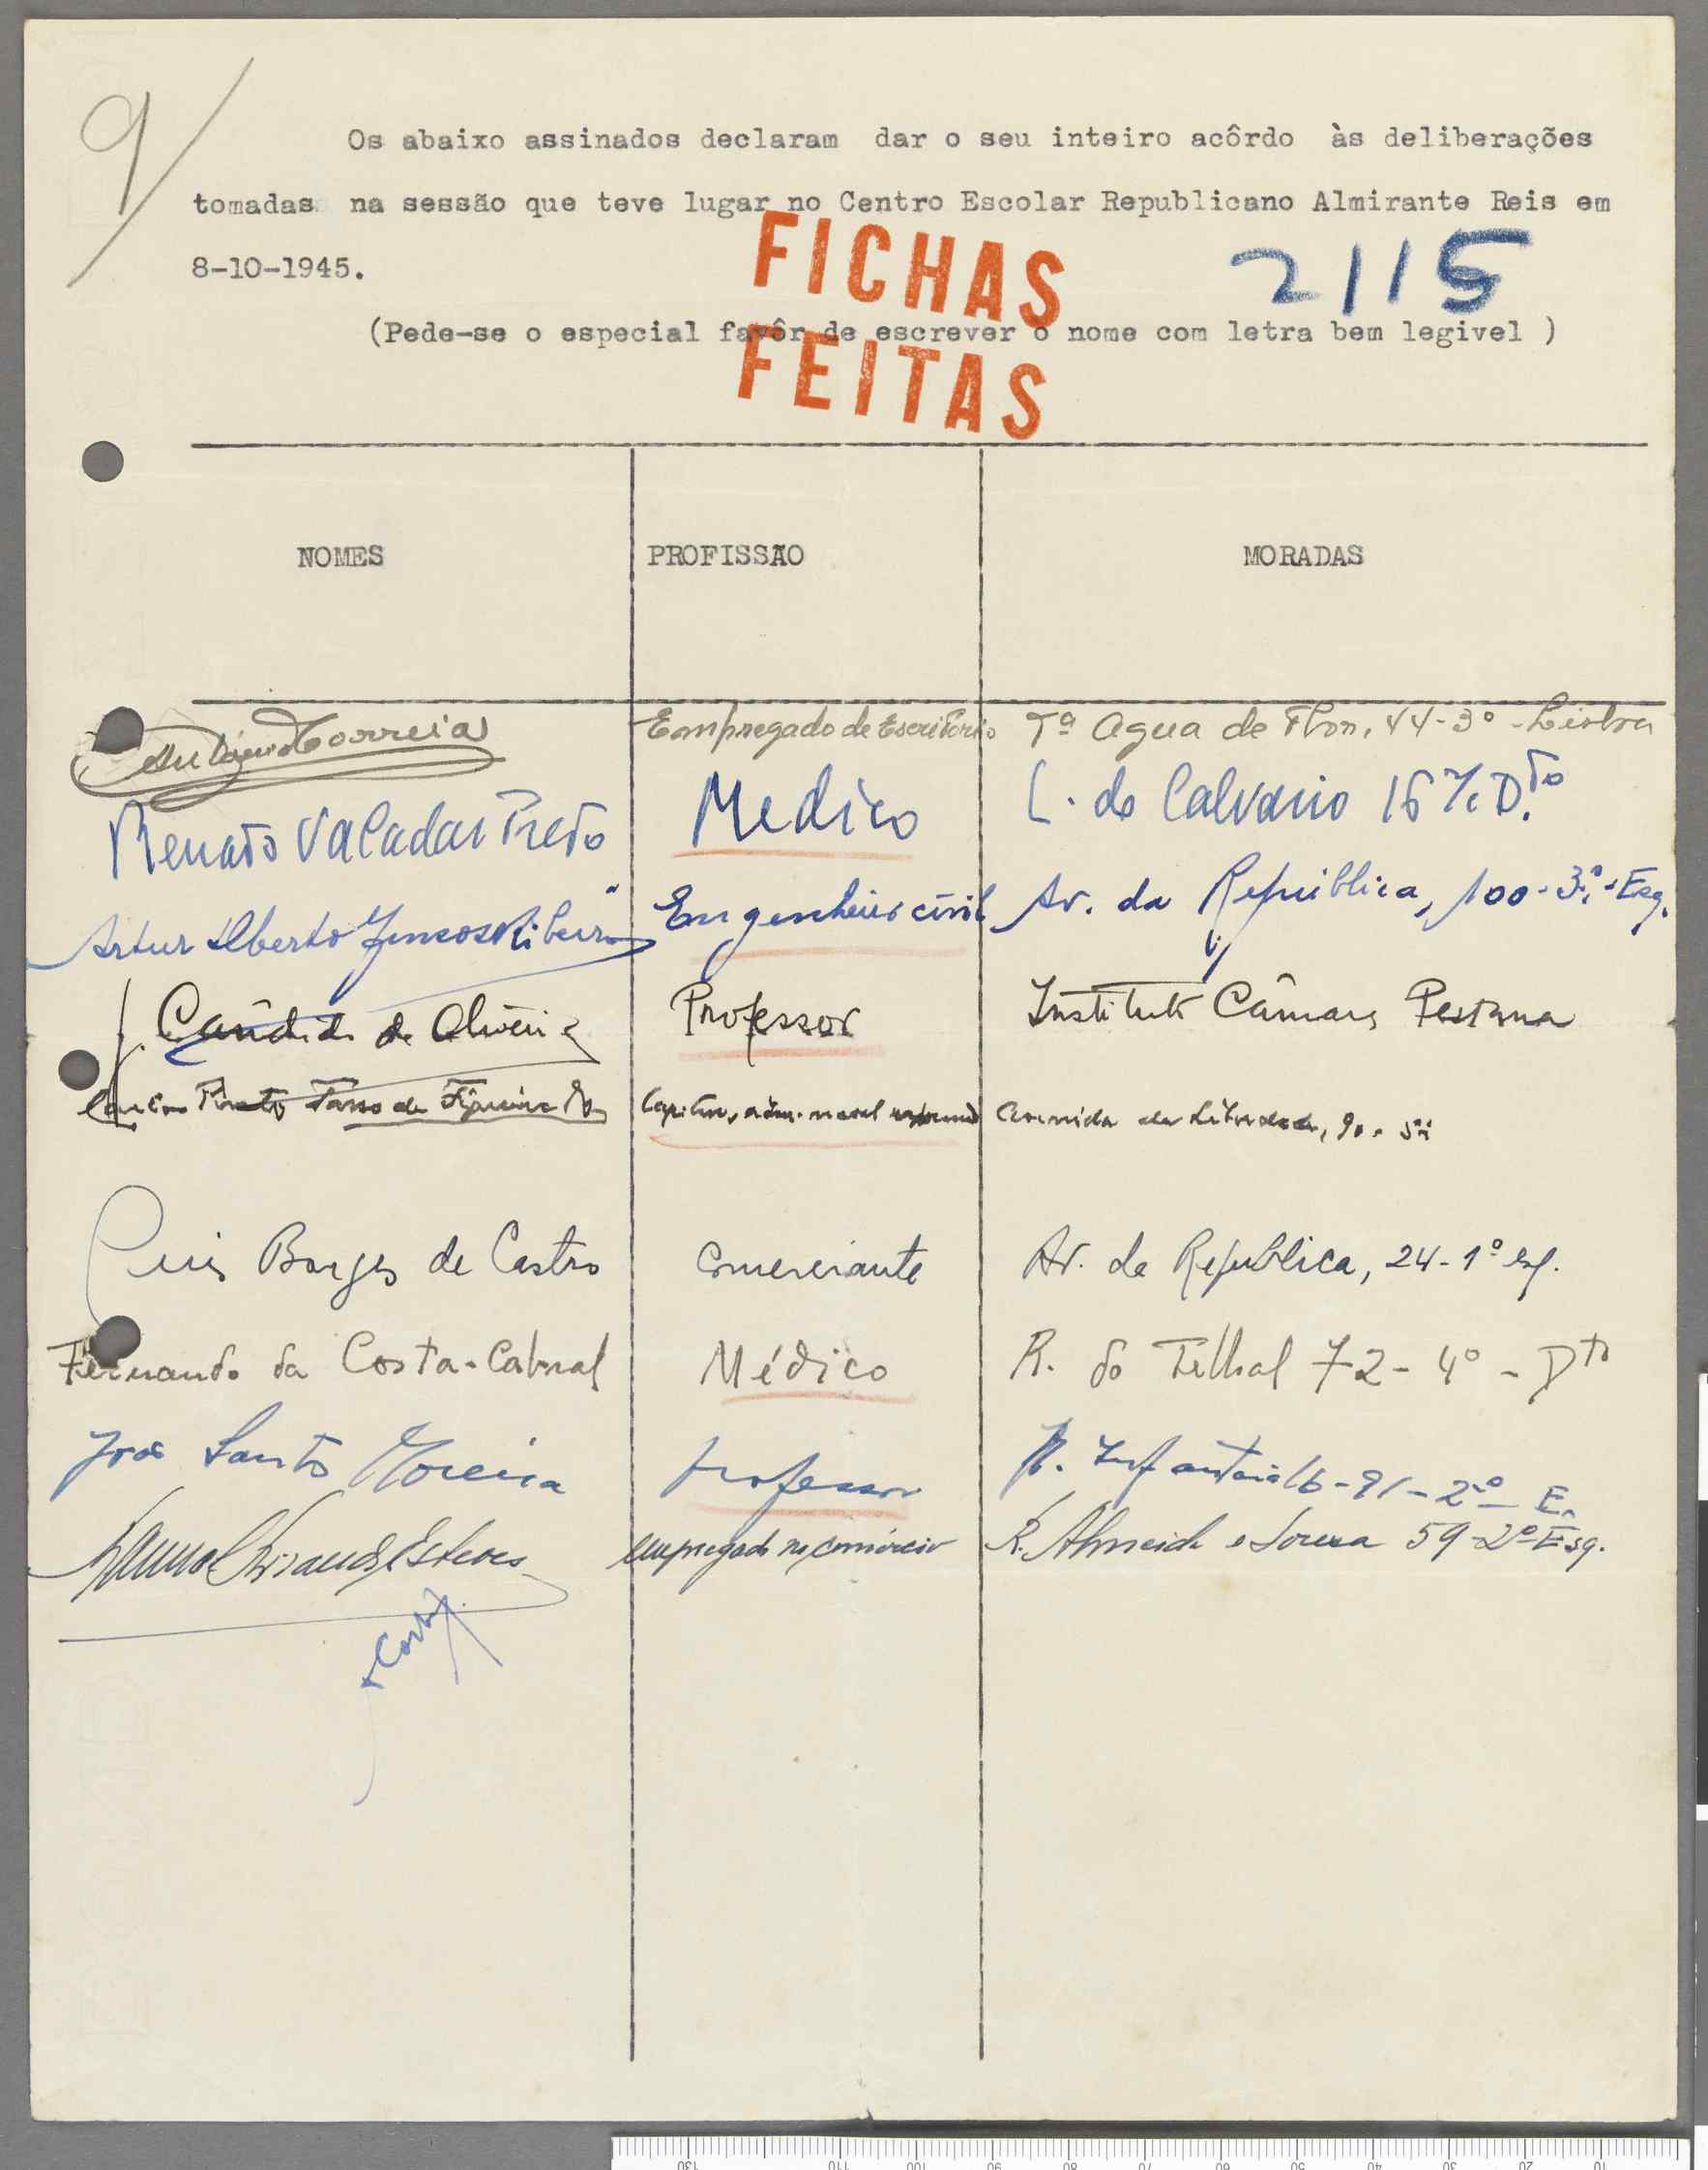 9
Os abaixo assinados declaram dar o seu inteiro acôrdo às deliberações
tomadas na sessão que teve lugar no Centro Escolar Republicano Almirante Reis em
8-10-1945.
FICHAS
2115
(Pede-se o especial favôr de escrever o nome com letra bem legivel )
FEITAS
NOMES PROFISSÃO MORADAS
Correia Empregado de Escritorio Tª Agua de Flor, 44-3º-Lisboa
Renato Valadas Preto Medico L. do Calvario 15 D.to
Artur Alberto Ribeiro Engenheiro civil Av. da República, 100-3º-Esq.
J. Cândido de Oliveira Professor Instituto Câmara Pestana
Tasso de Figueiredo adm. naval Avenida da Liberdade, 90-5º
Luis Borges de Castro Comerciante Av. da Republica, 24-1º esq.
Fernando da Costa-Cabral Médico R. do Telhal 72-4º-Dto
José Santos Moreira professor R. Infantaria 16-91-2º E.
Manuel Esteves empregado no comércio R. Almeida e Sousa 59-2º Esq.